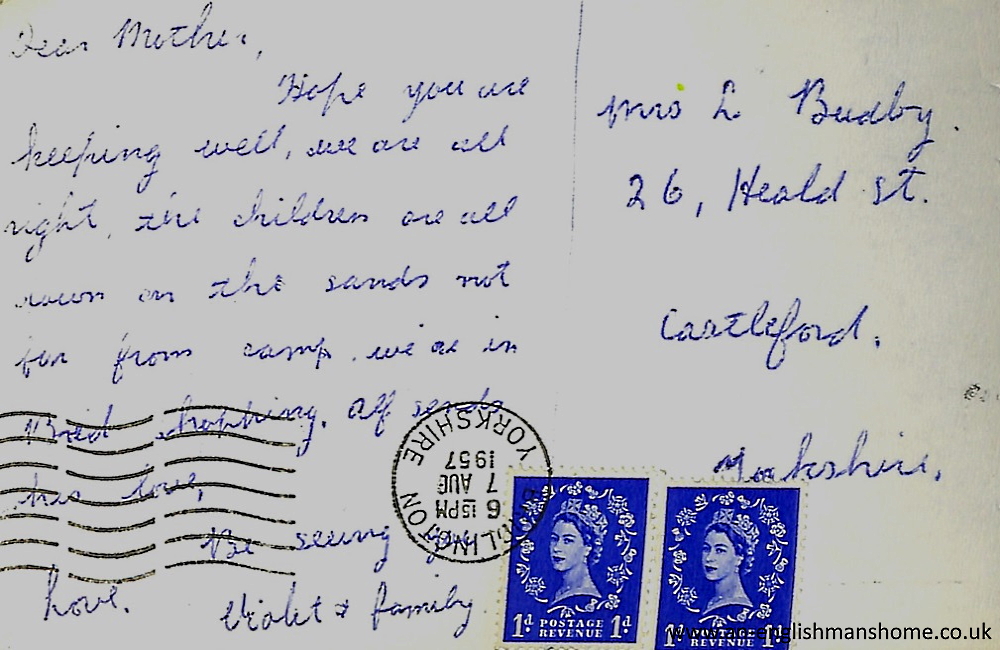 Dear Mother,
Hope you are
keeping well, we are all
right, the children are all
down on the sands not
far from camp, we are in
Brid shopping. Alf sends
his love,
Be seeing you
love.
Violet & family
Mrs L Budby.
26, Heald St.
Castleford.
Yorkshire.
BRIDLINGTON
6 15PM
7 AUG
1957
YORKSHIRE
1d POSTAGE REVENUE 1d
1d POSTAGE REVENUE 1d
www.an-englishmanshome.co.uk